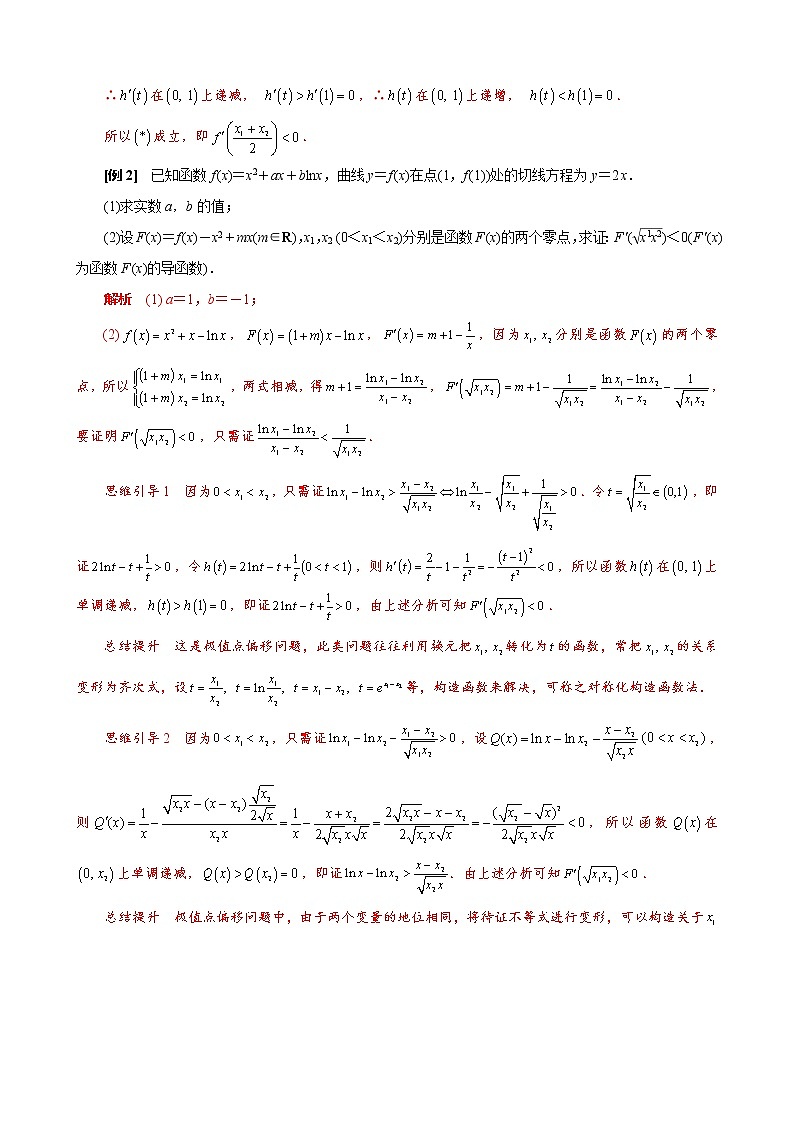 ∴h′(t)在(0, 1)上递减， h′(t)>h′(1)=0，∴h(t)在(0, 1)上递增， h(t)<h(1)=0．
所以(*)成立，即 f′((x₁+x₂)/2)<0．
[例2] 已知函数f(x)＝x²＋ax＋blnx，曲线y＝f(x)在点(1，f(1))处的切线方程为y＝2x．
(1)求实数a，b的值；
(2)设F(x)＝f(x)－x²＋mx(m∈R)，x1，x2 (0＜x1＜x2)分别是函数F(x)的两个零点，求证：F′(√(x1x2))＜0(F′(x)
为函数F(x)的导函数)．
解析 (1) a＝1，b＝－1；
(2) f(x)=x²+x−lnx，F(x)=(1+m)x−lnx，F′(x)=m+1−1/x，因为x₁, x₂分别是函数F(x)的两个零
点，所以{(1+m)x₁=lnx₁ (1+m)x₂=lnx₂，两式相减，得m+1=(lnx₁−lnx₂)/(x₁−x₂)，F′(√(x₁x₂))=m+1−1/√(x₁x₂)=(lnx₁−lnx₂)/(x₁−x₂)−1/√(x₁x₂)，
要证明F′(√(x₁x₂))<0，只需证(lnx₁−lnx₂)/(x₁−x₂)<1/√(x₁x₂)．
思维引导1 因为0<x₁<x₂，只需证lnx₁−lnx₂>(x₁−x₂)/√(x₁x₂)⇔ln x₁/x₂−√(x₁/x₂)+1/√(x₁/x₂)>0．令t=√(x₁/x₂)∈(0,1)，即
证2lnt−t+1/t>0，令h(t)=2lnt−t+1/t(0<t<1)，则h′(t)=2/t−1−1/t²=−(t−1)²/t²<0，所以函数h(t)在(0, 1)上
单调递减，h(t)>h(1)=0，即证2lnt−t+1/t>0，由上述分析可知F′(√(x₁x₂))<0．
总结提升 这是极值点偏移问题，此类问题往往利用换元把x₁, x₂转化为t的函数，常把x₁, x₂的关系
变形为齐次式，设t=x₁/x₂, t=ln x₁/x₂, t=x₁−x₂, t=e^(x₁−x₂)等，构造函数来解决，可称之对称化构造函数法．
思维引导2 因为0<x₁<x₂，只需证lnx₁−lnx₂−(x₁−x₂)/√(x₁x₂)>0，设Q(x)=lnx−lnx₂−(x−x₂)/√(x₂x)(0<x<x₂)，
则Q′(x)=1/x−(√(x₂x)−(x−x₂)√x₂/(2√x))/(x₂x)=1/x−(x+x₂)/(2√(x₂)x√x)=(2√(x₂x)−x−x₂)/(2√(x₂)x√x)=−(√x₂−√x)²/(2√(x₂)x√x)<0，所以函数Q(x)在
(0, x₂)上单调递减，Q(x)>Q(x₂)=0，即证lnx−lnx₂>(x−x₂)/√(x₂x)．由上述分析可知F′(√(x₁x₂))<0．
总结提升 极值点偏移问题中，由于两个变量的地位相同，将待证不等式进行变形，可以构造关于x₁